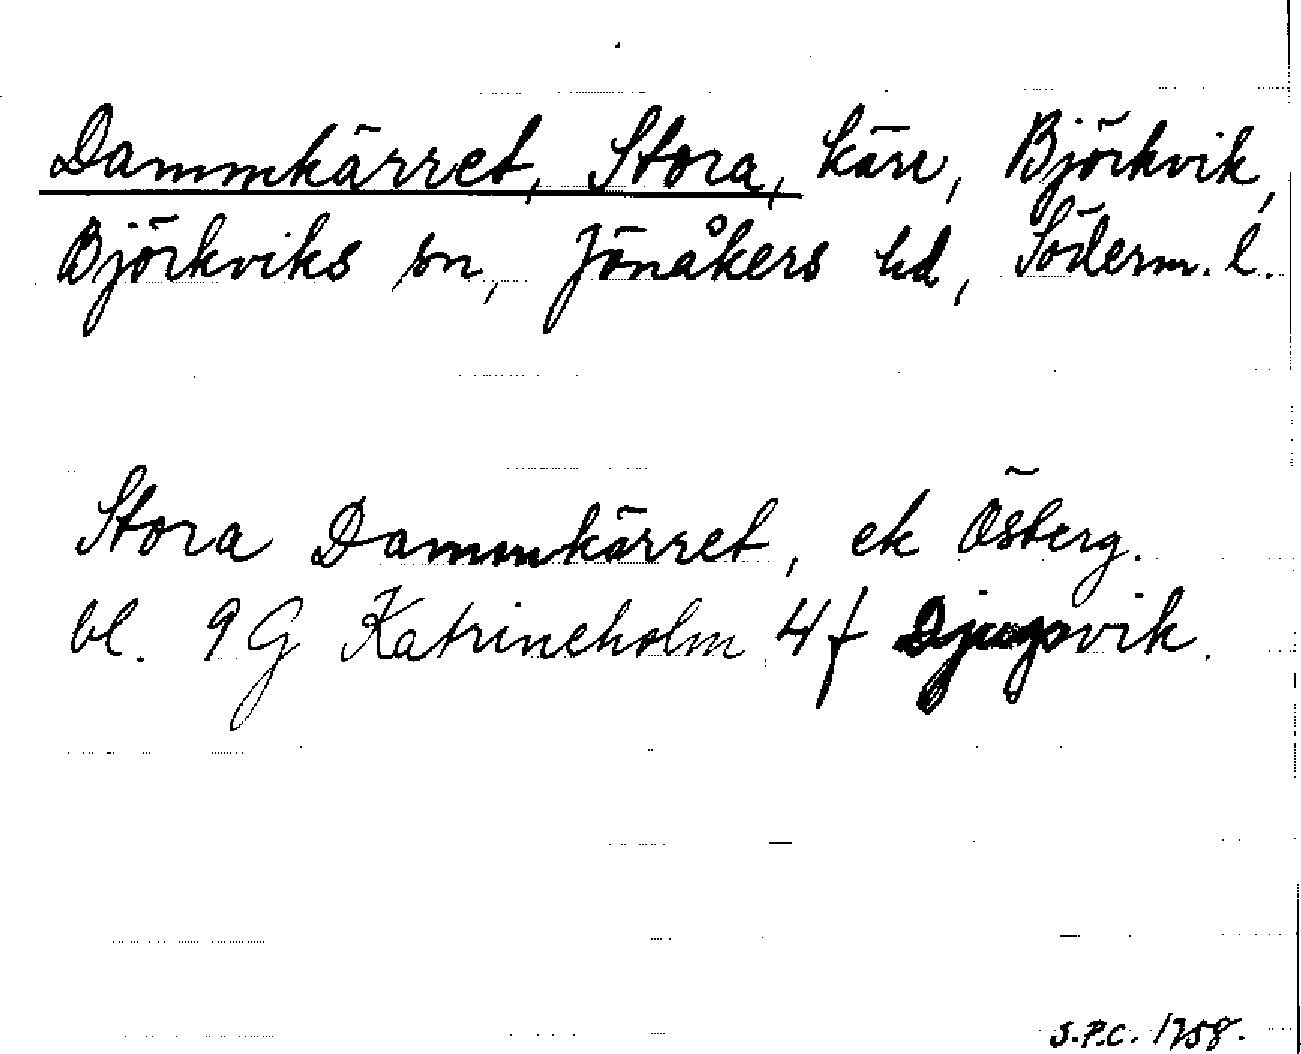 Dammkärret, Stora, kärr, Björkvik,
Björkviks sn, Jönåkers hd, Söderm. l.
Stora Dammkärret, ek Österg.
bl. 9G Katrineholm 4f Djupvik.
S.P.C. 1758.